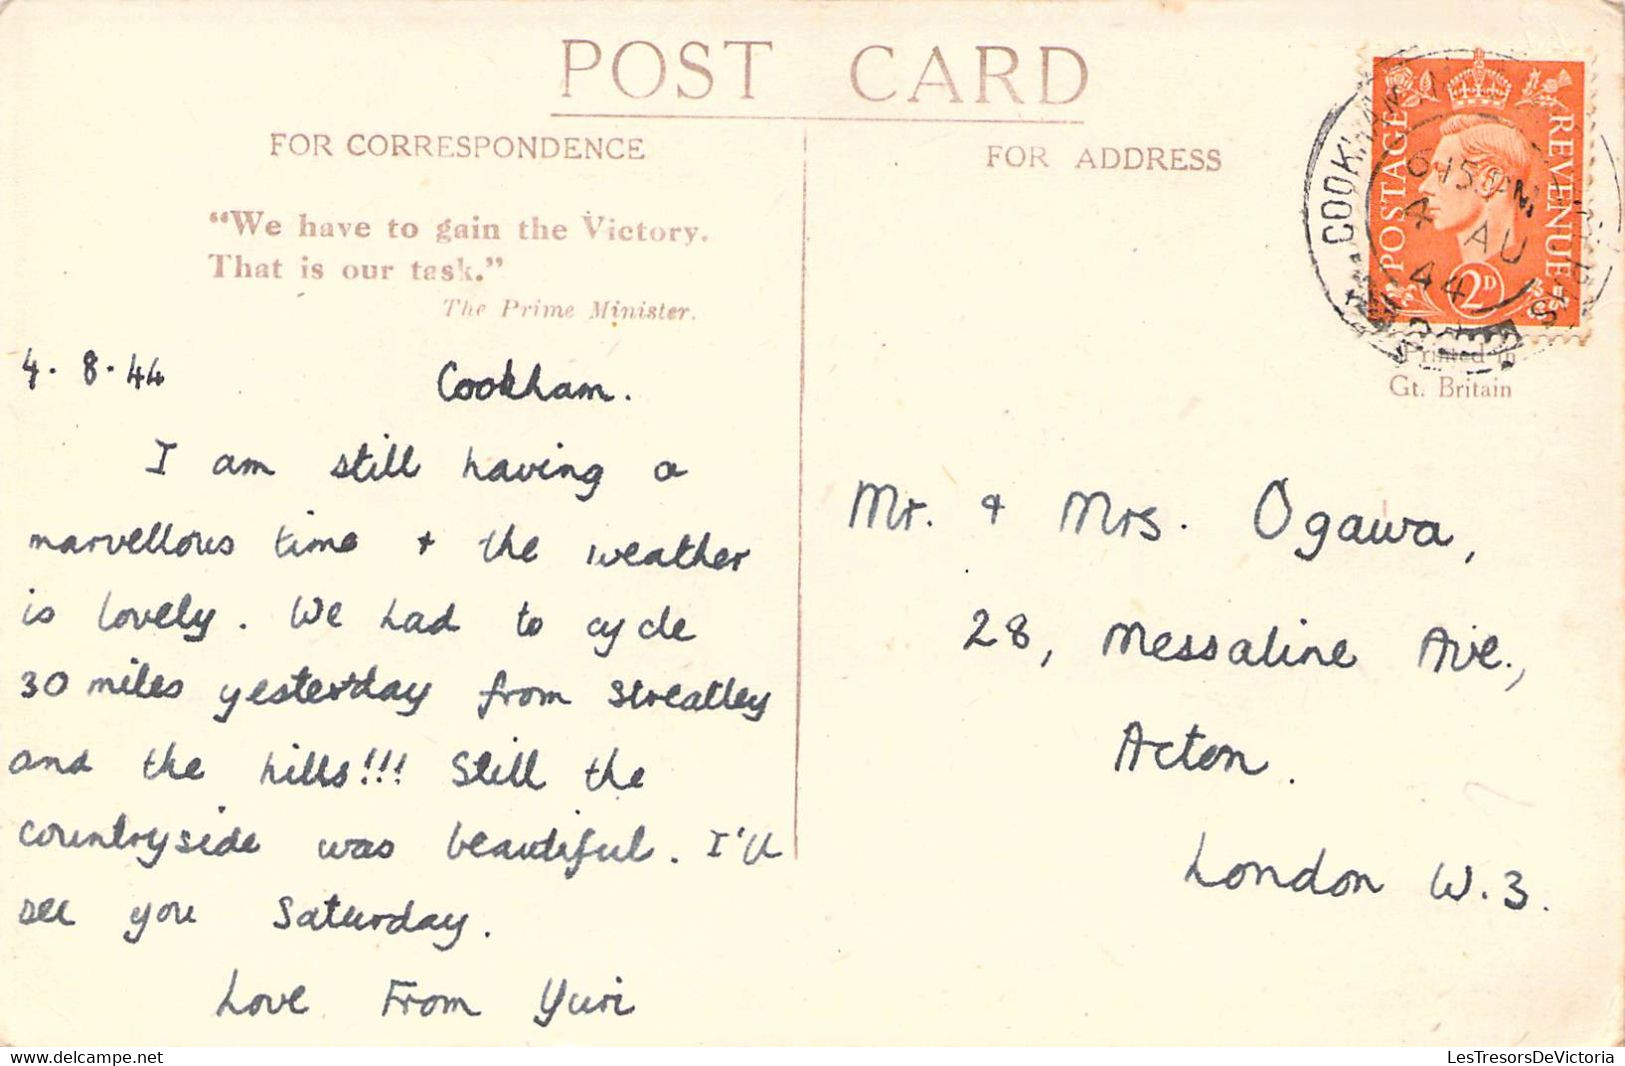 POST CARD
FOR CORRESPONDENCE
FOR ADDRESS
"We have to gain the Victory.
That is our task."
The Prime Minister.
4. 8. 44 Cookham.
I am still having a
marvellous time + the weather
is lovely. We had to cycle
30 miles yesterday from Streatley
and the hills!!! Still the
countryside was beautiful. I'll
see you Saturday.
Love From Yuri
COOKHAM
6 15 PM
4 AU
44
POSTAGE
REVENUE
2D
Printed in
Gt. Britain
Mr. & Mrs. Ogawa,
28, Messaline Ave.,
Acton.
London W.3.
delcampe.net
LesTresorsDeVictoria